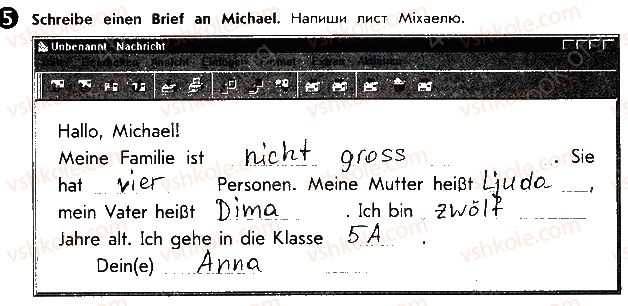 5 Schreibe einen Brief an Michael. Напиши лист Міхаелю.
Unbenannt - Nachricht
Datei Bearbeiten Ansicht Einfügen Format Extras Aktionen
Hallo, Michael!
Meine Familie ist nicht gross. Sie
hat vier Personen. Meine Mutter heißt Ljuda,
mein Vater heißt Dima. Ich bin zwölf
Jahre alt. Ich gehe in die Klasse 5A.
Dein(e) Anna